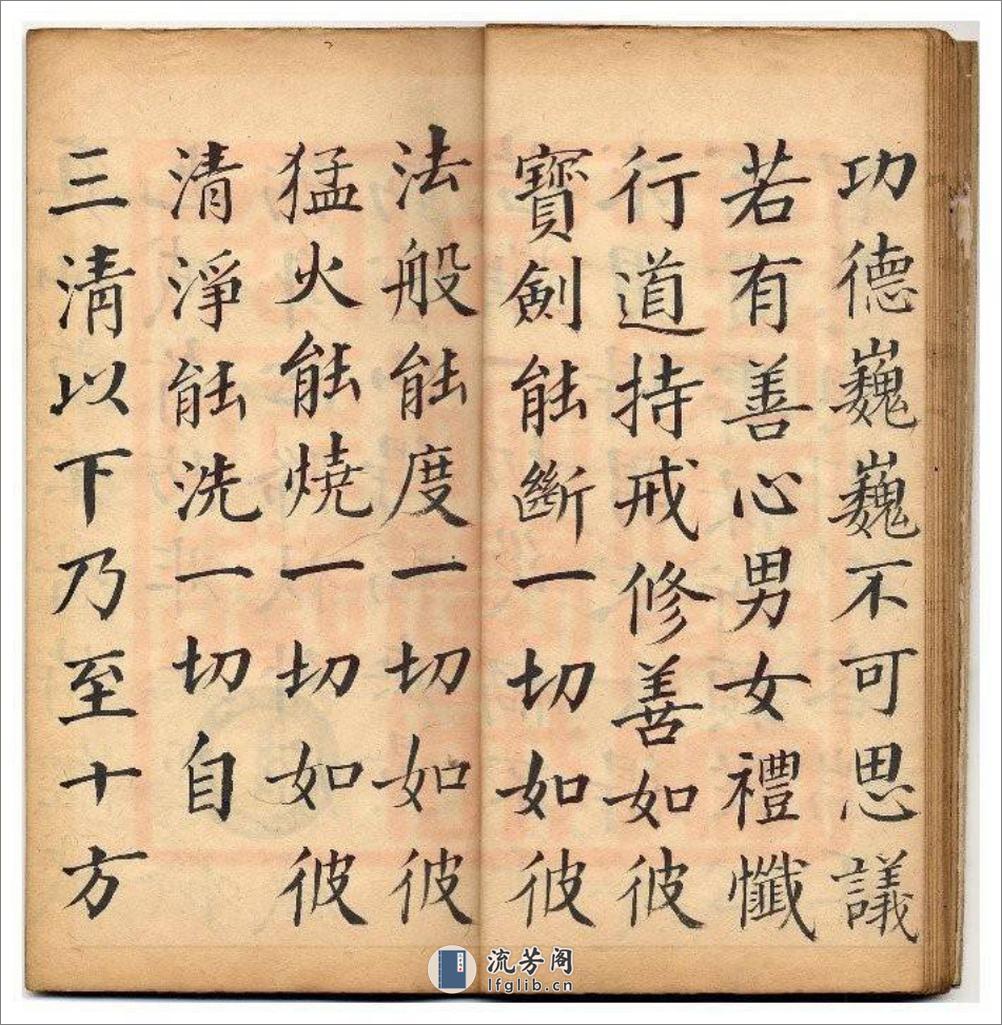 功德巍巍不可思議
若有善心男女禮懺
行道持戒修善如彼
寳劍能斷一切如彼
法般能度一切如彼
猛火能燒一切如彼
清淨能洗一切自
三清以下乃至十方
流芳阁
lfglib.cn